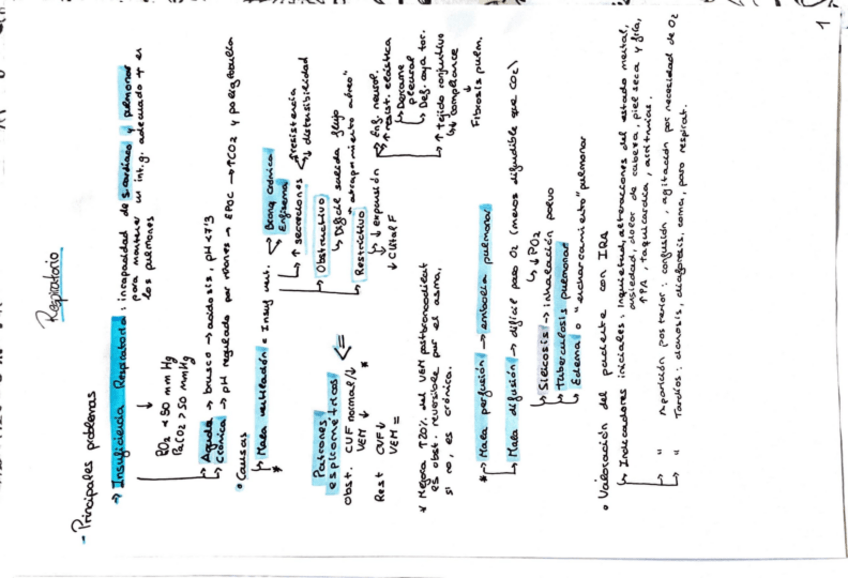 Respiratorio
- Principales problemas
→ Insuficiencia Respiratoria: incapacidad de s. cardiaco y pulmonar
para mantener un int. g. adecuado + en
los pulmones
↓
PO2 < 50 mm Hg
PaCO2 > 50 mmHg
↳ Aguda → brusco → acidosis, pH < 7'3
↳ Crónica → pH regulado por riñones → EPOC → ↑CO2 y poliglobulia
• Causas
↳ Mala ventilación = Insuf. vent.
Bronq. crónica
Enfisema
↑ secreciones
↑ resistencia
↓ distensibilidad
↳ Obstructivo
↳ Difícil salida flujo
"atrapamiento aéreo"
↳ Restrictivo
↓ expansión
↓ C vital F
Enf. neuro
↑ resist. elástica
↳ Derrame
pleural
↳ Def. caja tor.
↳ ↑ tejido conjuntivo
↓ compliance
↓
Fibrosis pulm.
Patrones
espirométricos
Obst. CVF normal/↓
VEM ↓
Rest CVF ↓
VEM =
* Mejora ↑20% del VEM postbroncodilat
es obst. reversible por el asma,
si no, es crónica.
* → Mala perfusión → embolia pulmonar
↳ Mala difusión → difícil paso O2 (menos difundible que CO2)
↳ ↓PO2
↳ Silicosis → inhalación polvo
↳ Tuberculosis pulmonar
↳ Edema o "encharcamiento" pulmonar
• Valoración del paciente con IRA
↳ Indicadores iniciales: inquietud, alteraciones del estado mental,
ansiedad, dolor de cabeza, piel seca y fría,
↑PA, taquicardia, arritmias.
↳ " Aparición posterior: confusión, agitación por necesidad de O2
↳ " Tardíos: cianosis, diaforesis, coma, paro respirat.
1